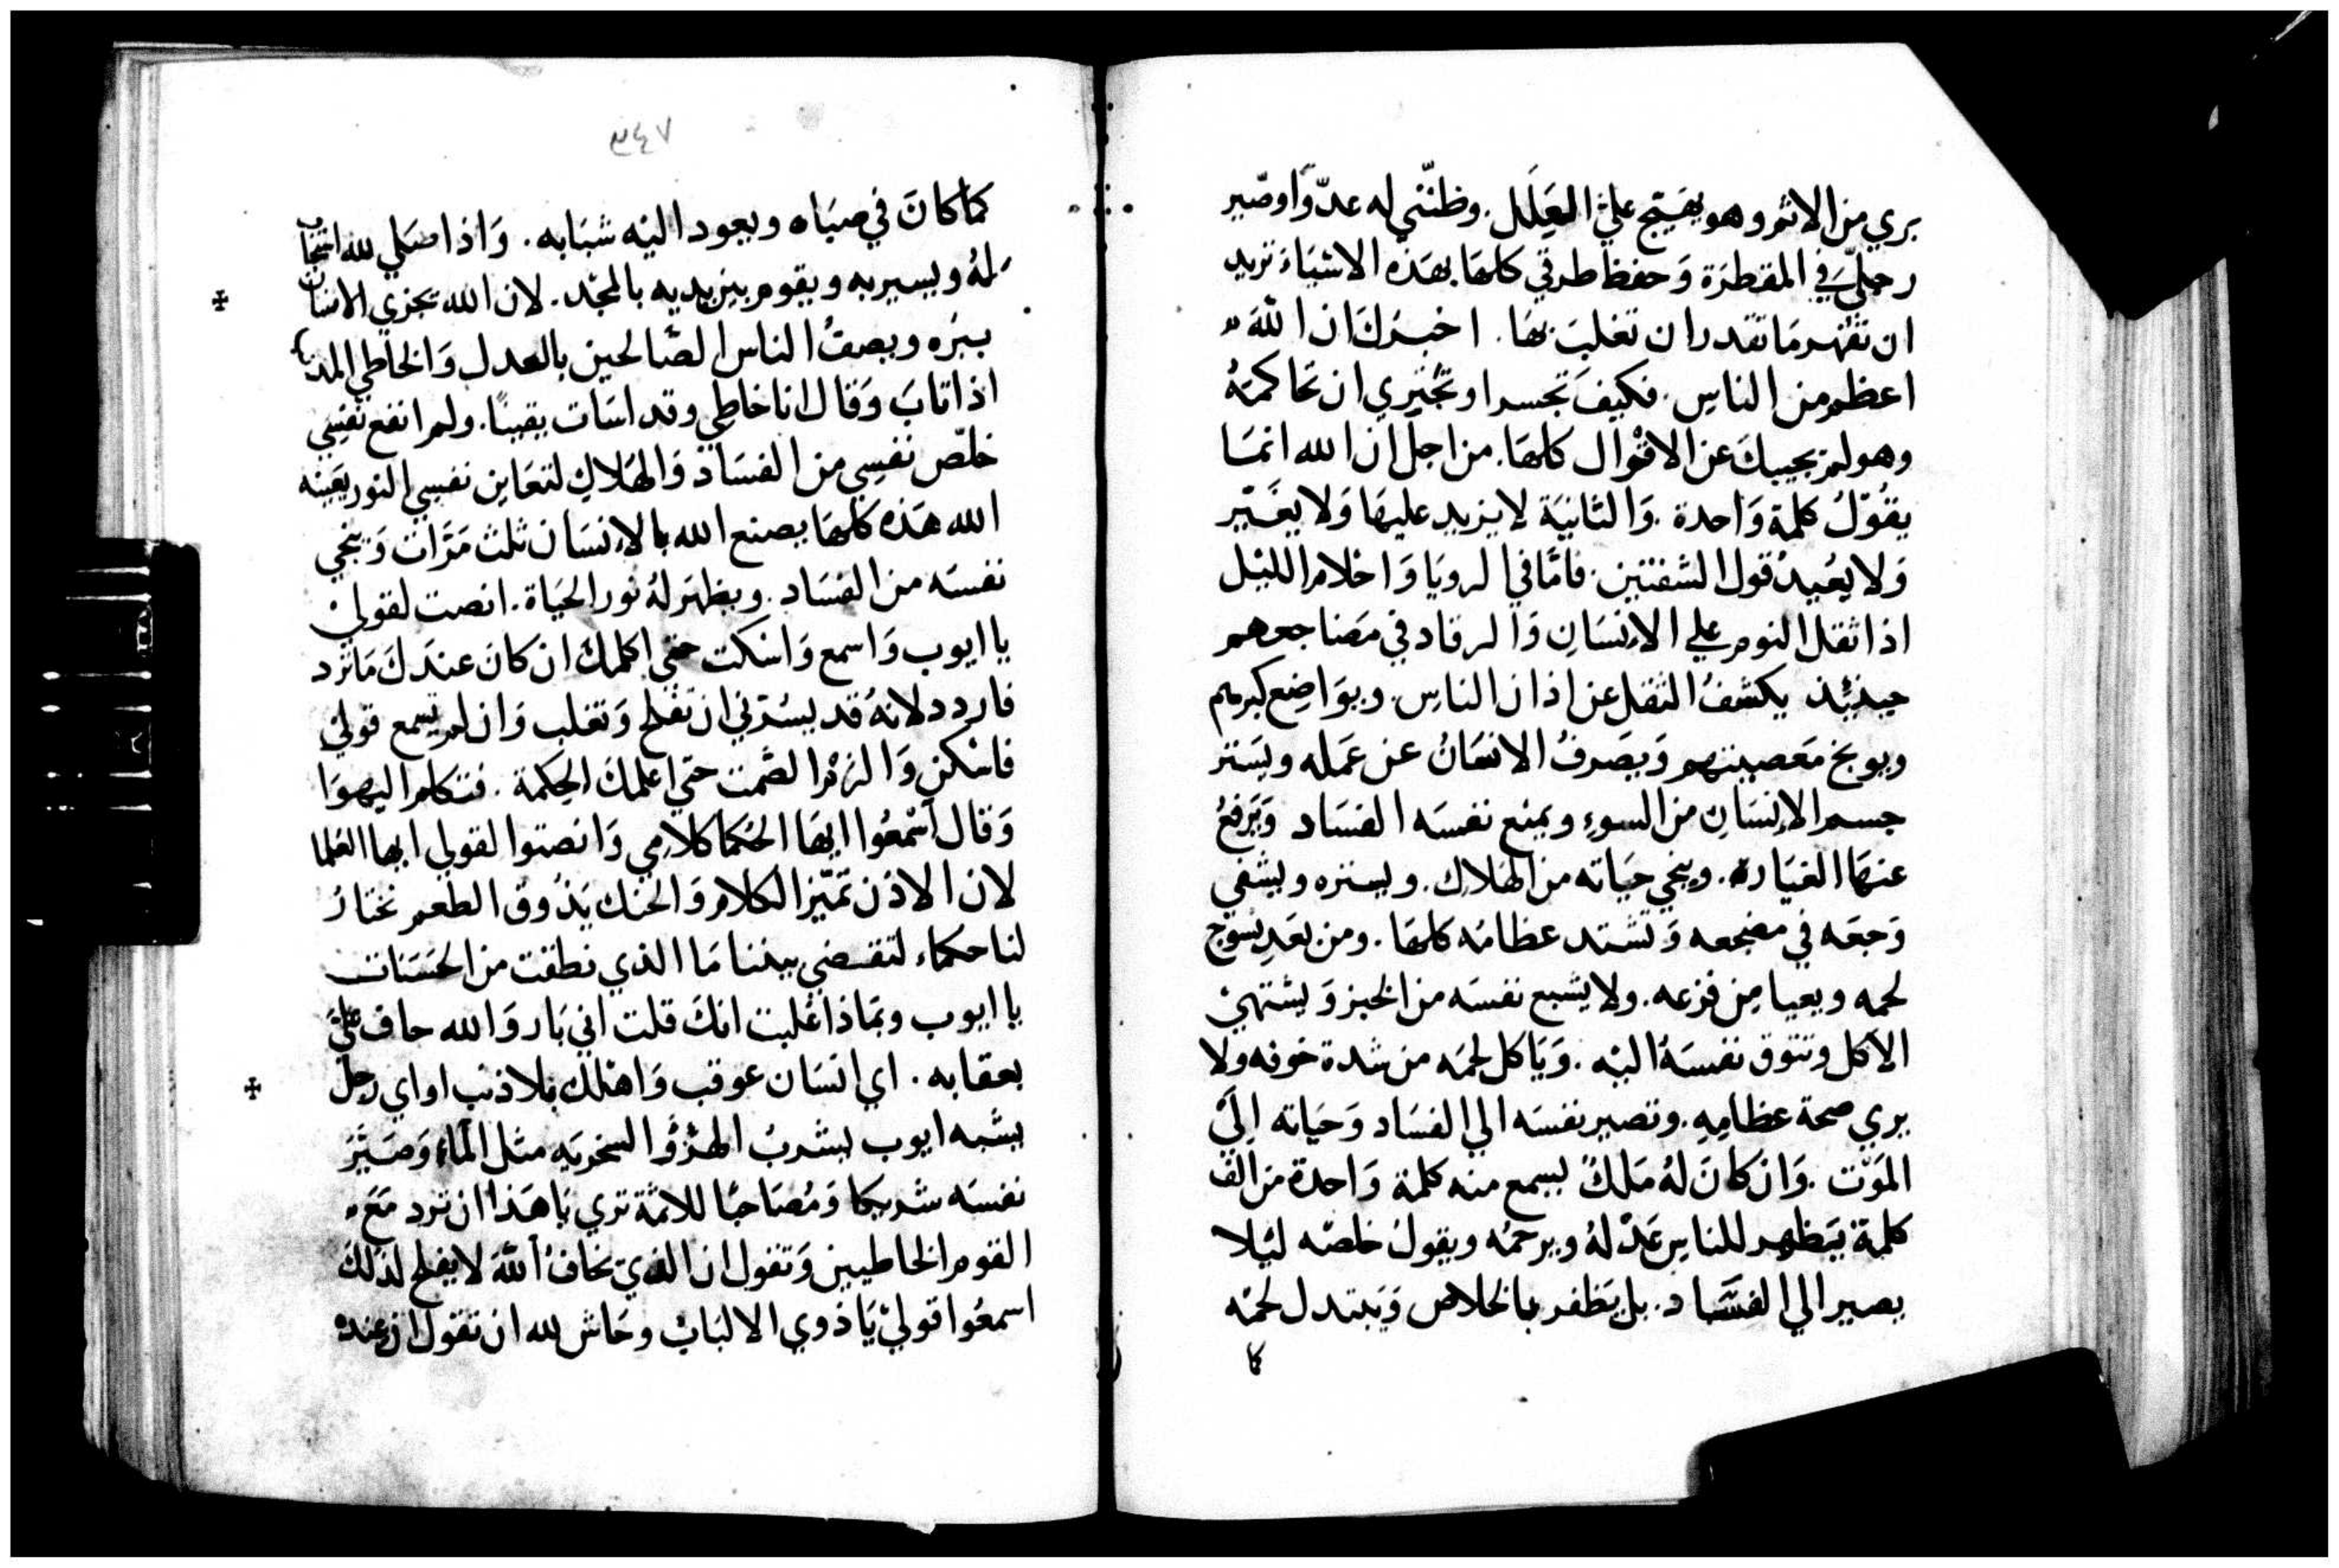 بري من الاثم وهو يهيّج عليّ العِلَل. وظنّني له عدّوًا وصّير
رجليّ في المقطرَة وَحفظ طرقي كلهَا بهَذه الاشيَاءَ تريد
ان تقهر مَا تقدر ان تغلبَ بهَا. اخبرَكَ ان اللّهَ
اعظم من الناسِ. فكيفَ تجسر او تجتري ان تحاكمَهُ
وهو لم يجيبكَ عن الاقوال كلهَا. من اجل ان الله انمَا
يقُوّلُ كلمة وَاحدة. وَالثانيَة لا يزيد عليهَا وَلا يغَيّر
وَلا يعُيدُ قول الشفتين. فامّا في الرويَا وَاحْلام الليْل
اذا ثقل النوم علي الانسَانِ وَالرقاد في مَضاجعهم
حينئِذ يكشفُ الثقل عن اذان الناسِ. وبوَاضِع كبرهم
ويوبخ مَعصيتهم وَيصَرفُ الانسَانُ عن عمَله ويسَتر
جسم الإنسَانِ من السوءِ ويمنع نفسَه الفسَاد وَيَرفعُ
عنهَا الغيَارة. وينجي حيَاته من الهَلاكِ. ويستره ويشفي
وَجعَه في مضجعه وَتشتد عظامُه كلهَا. ومن بَعَدِ يسَوّج
لحمه ويعيا من فزعه. ولا يشبع نفسَه من الخبز وَيشتهيْ
الاكل وتتوق نفسَهُ اليْه. وَيَاكل لحمَه من شدة خوفه ولا
يري صحة عظامِهِ. وتصير نفسَه الي الفسَاد وَحيَاته اِليَ
المَوْت. وَان كانَ لهُ مَلكٌ يسمع منه كلمة وَاحدة من الف
كلمة يَظهر للناسِ عَدْلهُ ويرحمُه ويقولُ خلصّه ليْلا
يصير الي الفسَاد. بل يَظفر بالخلاص وَيَبتدل لحمَه
كا
٣٤٧
كماَ كانَ في صبَاه ويعود اليْه شبَابه. وَاذا صَلي لله استجاب
لهُ ويسير به ويقوم بيْن يديه بالمجْد. لان الله يجزي الانسَان
ببّره ويصفُ الناس الصّالحين بالعدل وَالخاطي المذنب
اذا تابَ وَقال انا خاطي وقد اسَات يقينًا. ولم انفع نفسِي
خلّص نفسِي من الفسَاد وَالهَلاكِ لتعَاين نفسي النور بعَينه
الله هَذه كلهَا يصنع الله بالانسَان ثلث مَرَّات وَينجي
نفسَه من الفسَاد. ويظهَر لهُ نور الحيَاة. انصت لقوليْ
يا ايوب وَاسمع وَاسْكت حتي اكلمكَ ان كانَ عندَكَ مَا ترد
فاردد لانهُ قد يسُرّني ان تفلح وَتغلب وَان لم تسمع قوليْ
فاسْكن وَالزمْ الصّمت حتي اعلمكَ الحِكمة. فتكلم اليهوَا
وَقال اسْمعُوا ايهَا الحُكما كلامِي وَانصتوا لقولي ايها العُلما
لان الاذن تمَيّز الكلام وَالحنك يَذوق الطعم نختارُ
لنا حكماء لتقضي بيننا مَا الذي نطقت من الحسَنات
يا ايوب وبمَاذا غلبت انكَ قلت اني بَار وَالله حاف عليَّ
بعقابه. اي انسَان عوقب وَاهْلك بلا ذنب او اي رجل
يشبه ايوب يشربُ الهزؤ والسخريَه مثل الماء وَصَيّرَ
نفسَه شريكا وَمُصَاحبًا للاثمَة تري يَا هَذا ان ترد مَعَ
القوم الخاطيين وَتقول ان الذي يخَافُ اللّهَ لا يفلح لذلكَ
اسمعُوا قوليْ يَا ذوي الالبَابْ وحَاش لله ان تقول ان عنده